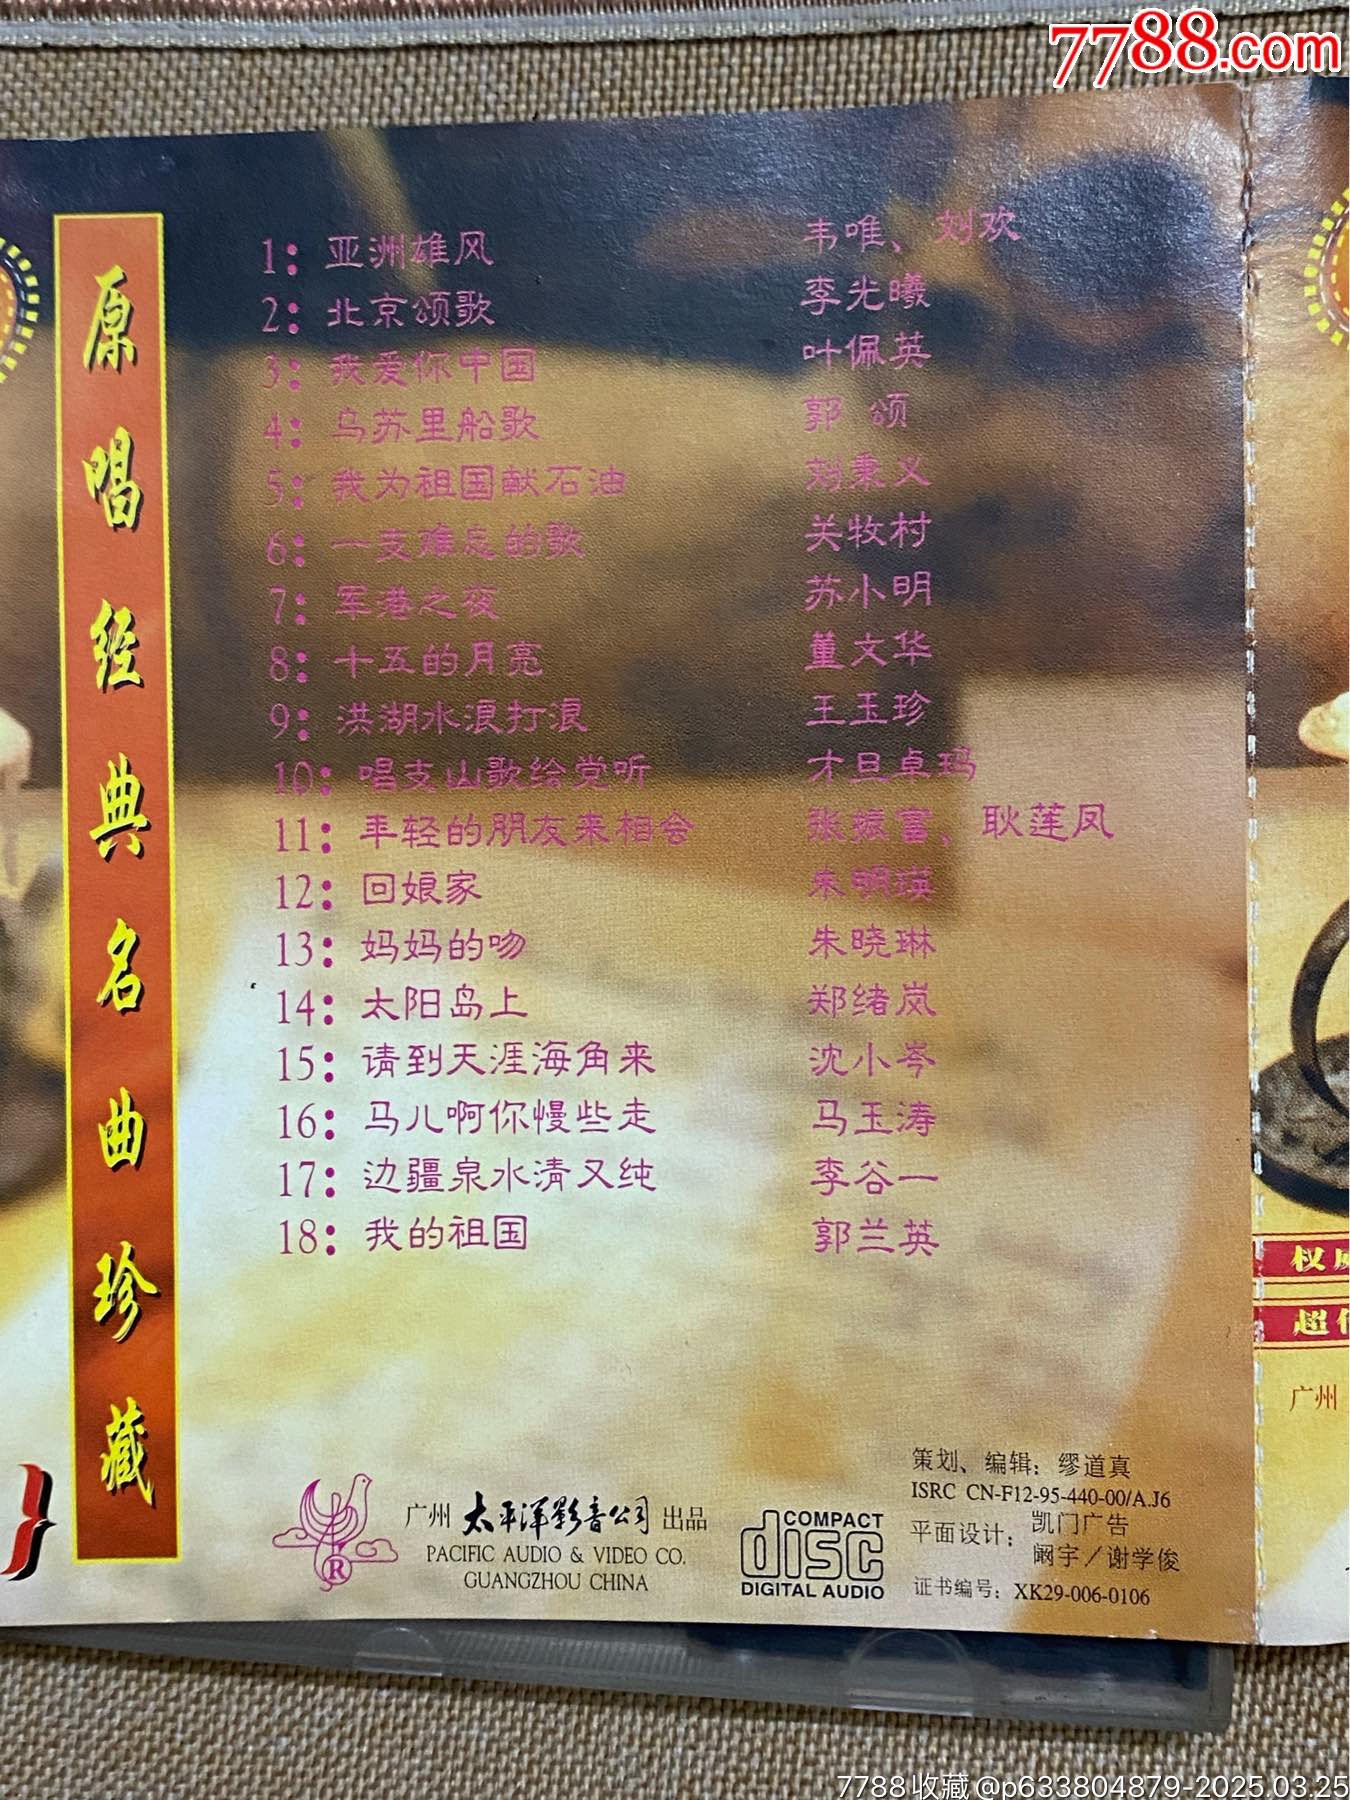 7788.com
原唱经典名曲珍藏
1：亚洲雄风 韦唯、刘欢
2：北京颂歌 李光曦
3：我爱你中国 叶佩英
4：乌苏里船歌 郭 颂
5：我为祖国献石油 刘秉义
6：一支难忘的歌 关牧村
7：军港之夜 苏小明
8：十五的月亮 董文华
9：洪湖水浪打浪 王玉珍
10：唱支山歌给党听 才旦卓玛
11：年轻的朋友来相会 张振富、耿莲凤
12：回娘家 朱明瑛
13：妈妈的吻 朱晓琳
14：太阳岛上 郑绪岚
15：请到天涯海角来 沈小岑
16：马儿啊你慢些走 马玉涛
17：边疆泉水清又纯 李谷一
18：我的祖国 郭兰英
R
广州 太平洋影音公司 出品
PACIFIC AUDIO & VIDEO CO.
GUANGZHOU CHINA
COMPACT
disc
DIGITAL AUDIO
策划、编辑：缪道真
ISRC CN-F12-95-440-00/A.J6
平面设计：凯门广告
阚宇／谢学俊
证书编号：XK29-006-0106
权
超
广州
7788收藏@p633804879-2025.03.25